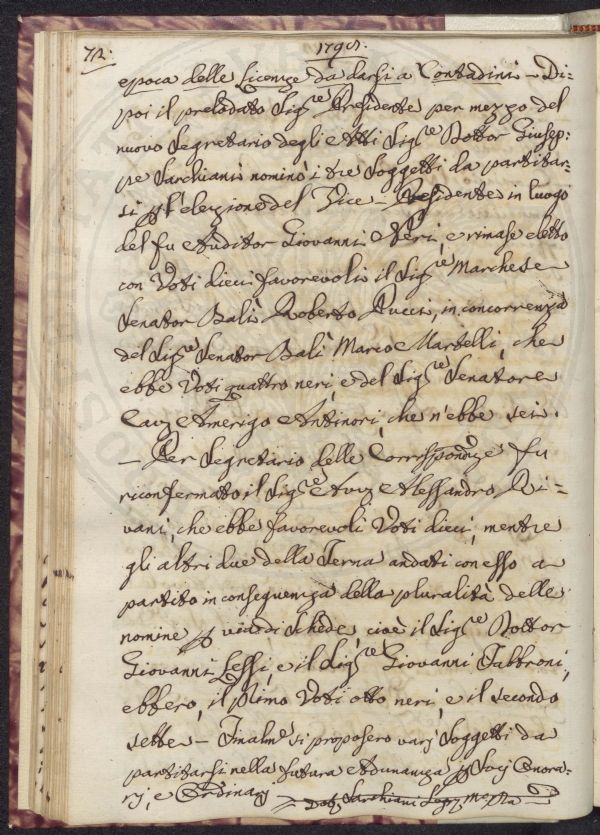 72.
epoca delle Licenze da darsi a Contadini - Di=
poi il prelodato Sig.re Presidente per mezzo del
nuovo Segretario degli Atti Sig.re Dottor Giusep=
pe Sarchiani nominò i tre Soggetti da partitar=
si p l'elezione del Vice-Presidente in luogo
del fu Auditor Giovanni Neri, e rimase eletto
con Voti dieci favorevoli il Sig.re Marchese
Senator Balì Roberto Pucci, in concorrenza
del Sig.re Senator Balì Marco Martelli, che
ebbe Voti quattro neri, e del Sig.re Senatore
Cav. Amerigo Antinori, che n'ebbe sei.
- Per Segretario delle Corrispondze fu
riconfermato il Sig.re Avv. Alessandro Ri=
vani, che ebbe favorevoli Voti dieci, mentre
gli altri due della Terna andati con esso a
partito in conseguenza della pluralità delle
nomine p via di Schede, cioè il Sig.re Dottor
Giovanni Lessi, e il Sig.re Giovanni Fabbroni,
ebbero, il primo Voti otto neri, e il secondo
sette - Finalme si proposero varj Soggetti da
partitarsi nella futura Adunanza p Socj Onora=
rj, e Ordinarj Sarchiani Seg